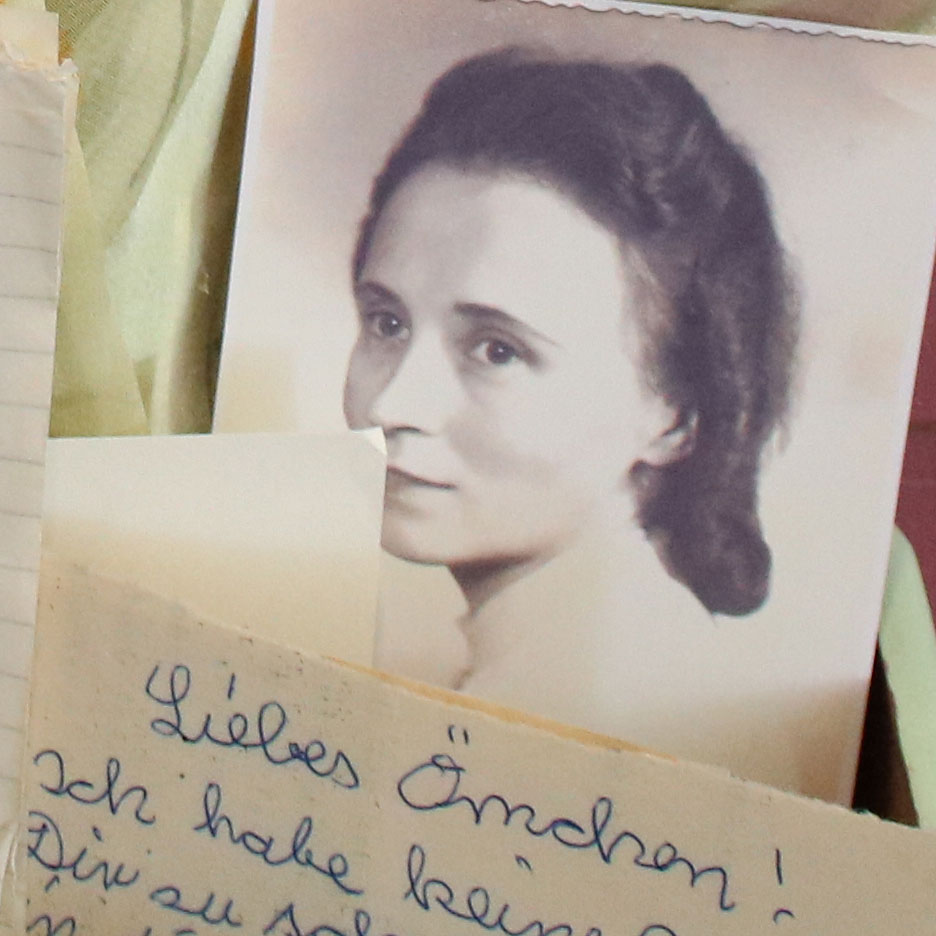 Liebes Ömchen!
Ich habe keine
Dir zu